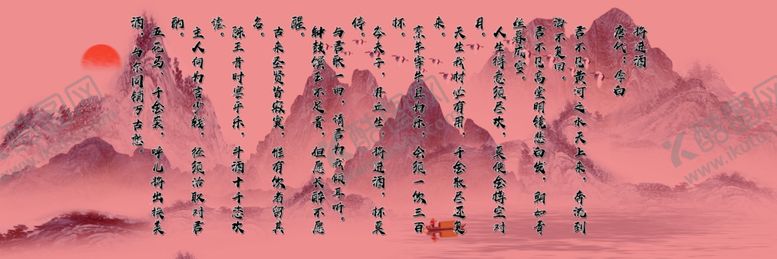 将进酒
唐代：李白
君不见黄河之水天上来，奔流到
海不复回
君不见高堂明镜悲白发，朝如青
丝暮成雪
人生得意须尽欢，莫使金樽空对
月。
天生我材必有用，千金散尽还复
来。
烹羊宰牛且为乐，会须一饮三百
杯。
岑夫子，丹丘生，将进酒，杯莫
停。
与君歌一曲，请君为我倾耳听。
钟鼓馔玉不足贵，但愿长醉不愿
醒。
古来圣贤皆寂寞，惟有饮者留其
名。
陈王昔时宴平乐，斗酒十千恣欢
谑。
主人何为言少钱，径须沽取对君
酌。
五花马，千金裘，呼儿将出换美
酒，与尔同销万古愁